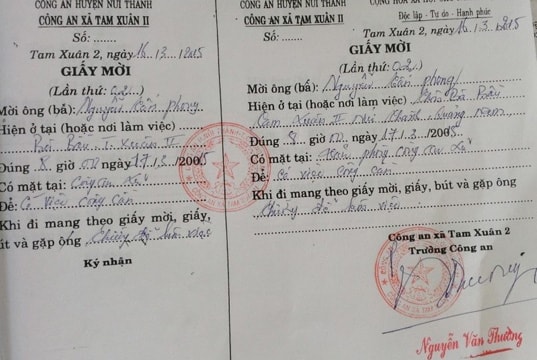 CÔNG AN HUYỆN NÚI THÀNH
CÔNG AN XÃ TAM XUÂN II
Số: ......
Tam Xuân 2, ngày 16.13.2015
GIẤY MỜI
(Lần thứ: 02...)
Mời ông (bà): Nguyễn Văn Phong
Hiện ở tại (hoặc nơi làm việc)
Bà Bầu T. Xuân II
Đúng 8 giờ 00 ngày 17.1.3./2005
Có mặt tại: Công an xã
Để: Có việc công an
Khi đi mang theo giấy mời, giấy,
bút và gặp ông
Ký nhận
Độc lập - Tự do - Hạnh phúc
CÔNG AN XÃ TAM XUÂN II
Số: ......
Tam Xuân 2, ngày 16.13.2015
GIẤY MỜI
(Lần thứ: 02...)
Mời ông (bà): Nguyễn Văn Phong
Hiện ở tại (hoặc nơi làm việc): Bà Bầu
Tam Xuân II Núi Thành Quảng Nam
Đúng 8 giờ 00 ngày 17.1.3./2005
Có mặt tại: phòng công an xã
Để: Có việc công an
Khi đi mang theo giấy mời, giấy, bút và gặp ông
Công an xã Tam Xuân 2
Trưởng Công an
Nguyễn Văn Thường